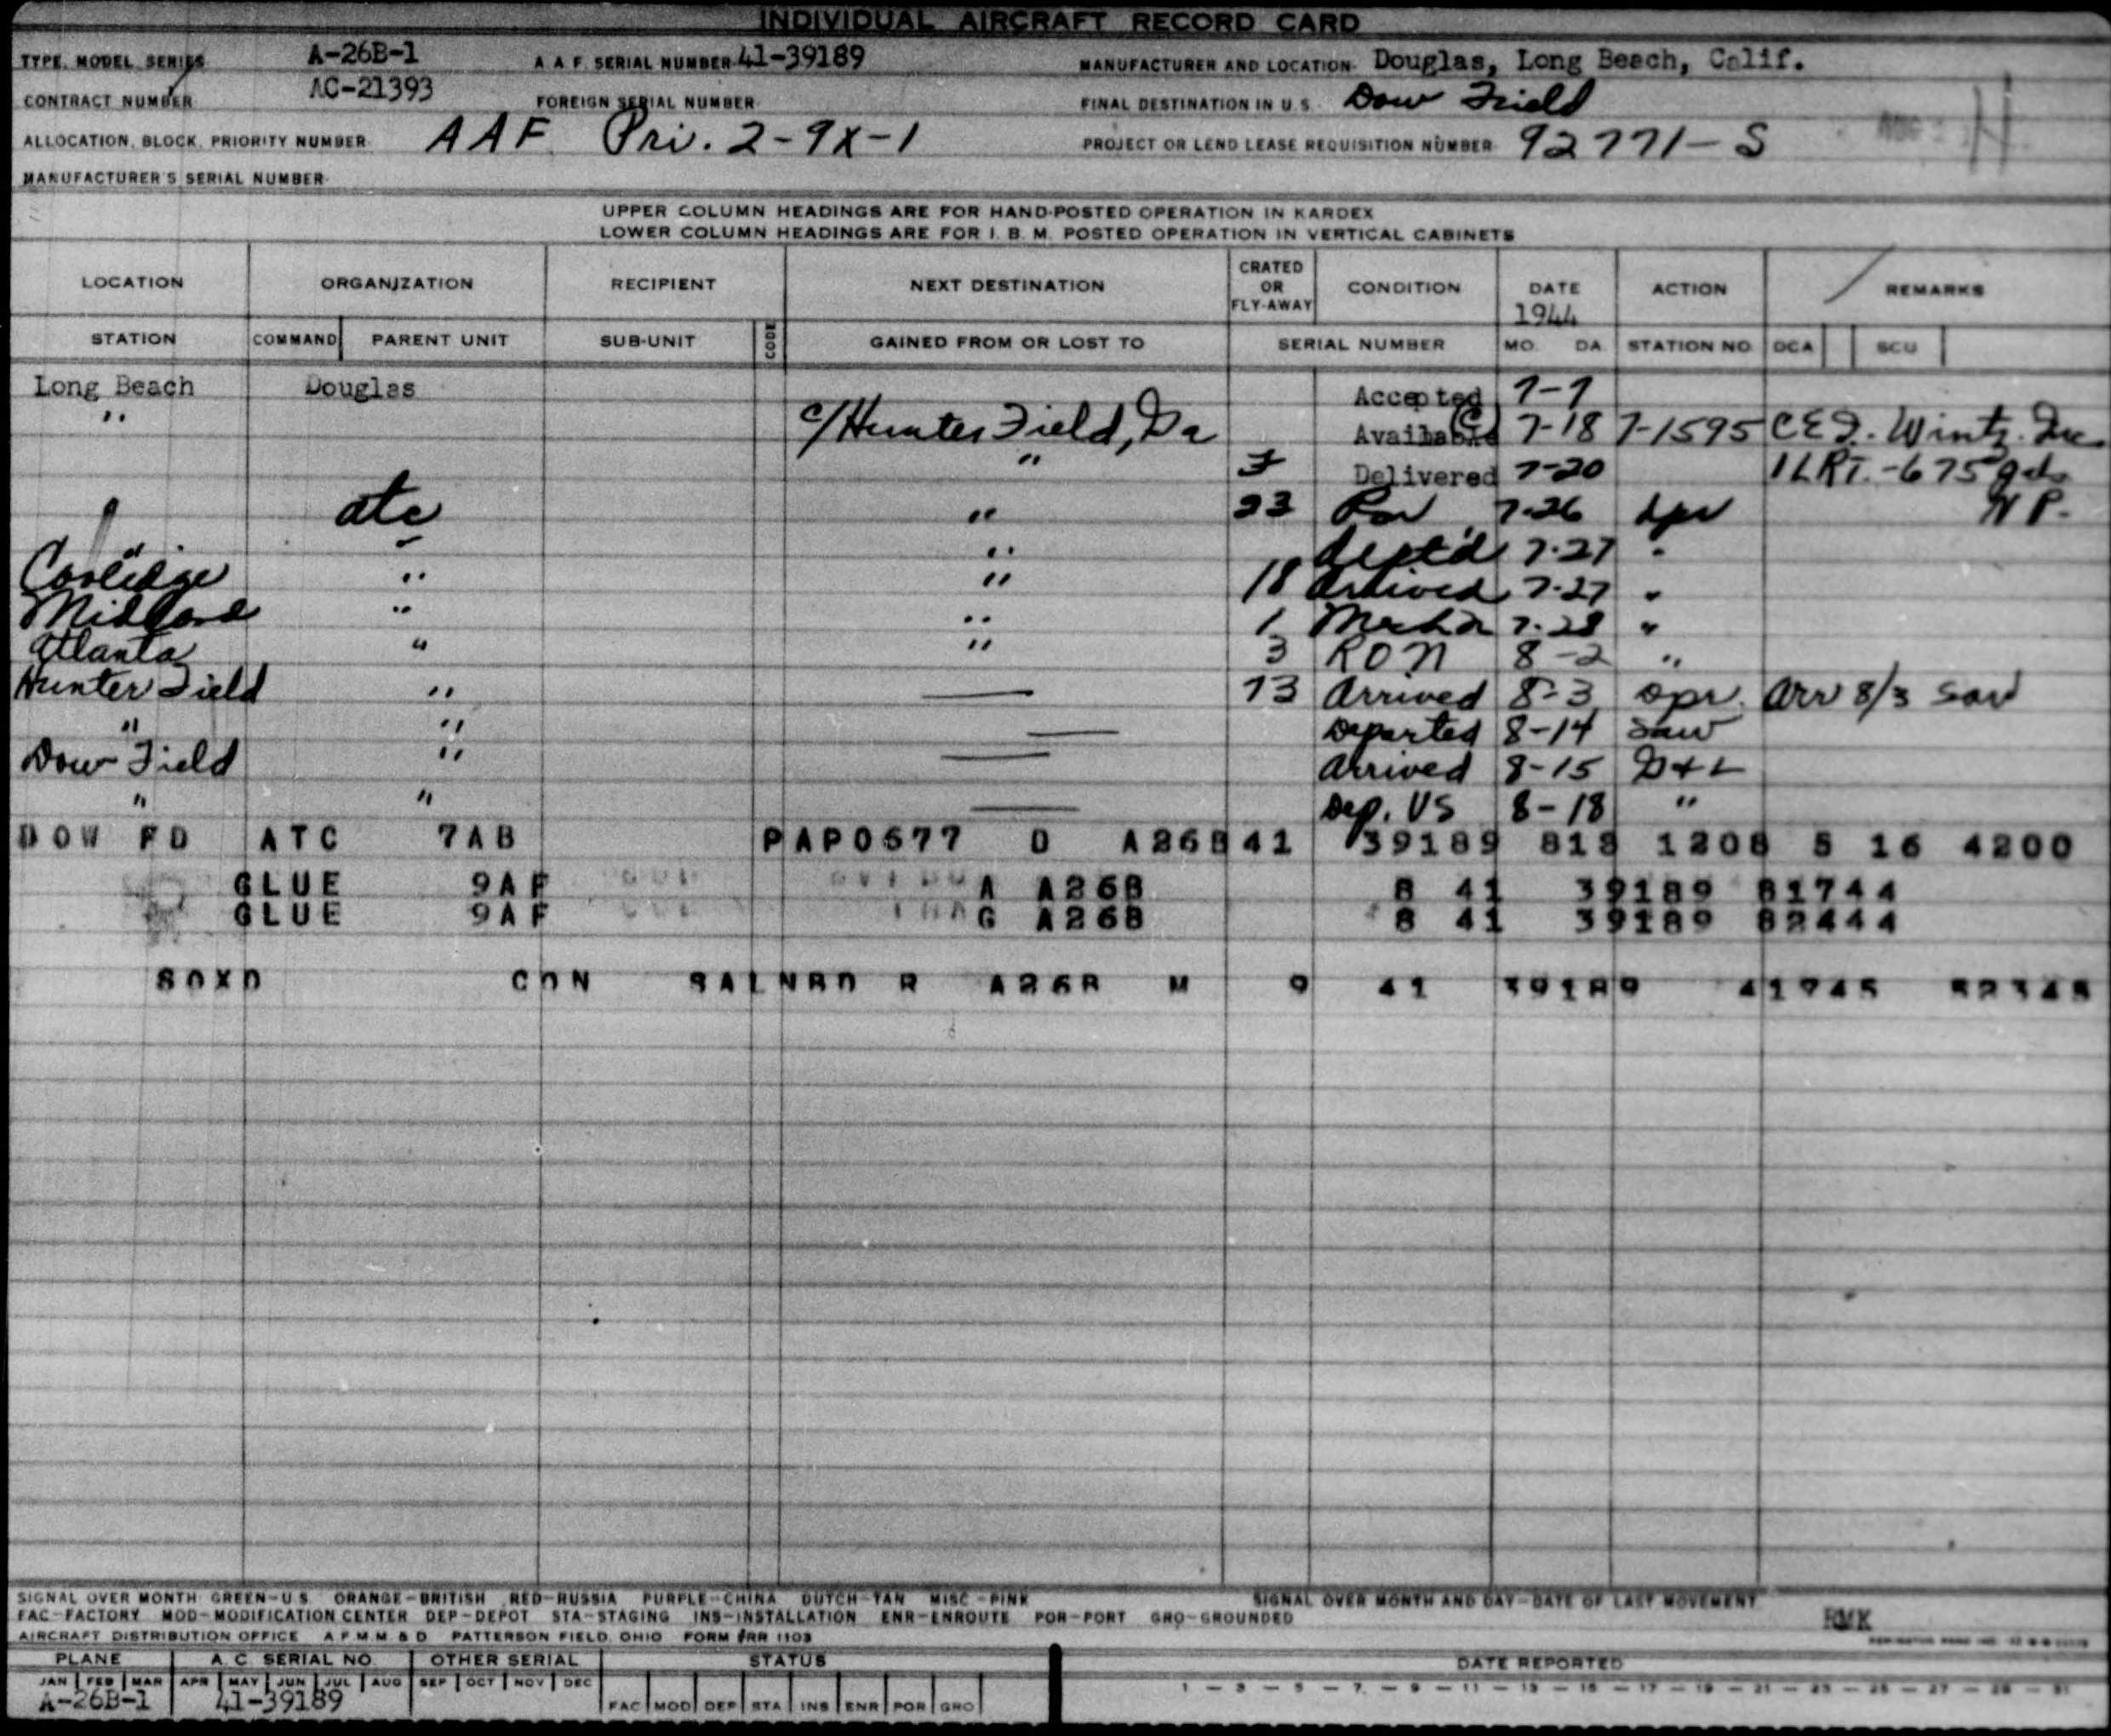 INDIVIDUAL AIRCRAFT RECORD CARD
TYPE, MODEL, SERIES A-26B-1 A A F. SERIAL NUMBER 41-39189 MANUFACTURER AND LOCATION Douglas, Long Beach, Calif.
CONTRACT NUMBER AC-21393 FOREIGN SERIAL NUMBER FINAL DESTINATION IN U.S. Dow Field
ALLOCATION, BLOCK, PRIORITY NUMBER AAF Pri. 2-9X-1 PROJECT OR LEND LEASE REQUISITION NUMBER 92771-S H
MANUFACTURER'S SERIAL NUMBER
UPPER COLUMN HEADINGS ARE FOR HAND-POSTED OPERATION IN KARDEX
LOWER COLUMN HEADINGS ARE FOR I. B. M. POSTED OPERATION IN VERTICAL CABINETS
LOCATION ORGANIZATION RECIPIENT NEXT DESTINATION CRATED OR FLY-AWAY CONDITION DATE 1944 ACTION REMARKS
STATION COMMAND PARENT UNIT SUB-UNIT CODE GAINED FROM OR LOST TO SERIAL NUMBER MO. DA. STATION NO. OCA SCU
Long Beach Douglas Accepted 7-7
" c/Hunter Field, Ga Available 7-18 7-1595 Wintz. Inc.
" Delivered 7-20 -675 gals
atc " 23 7-26 N P.
" " dept'd 7-27 "
Coolidge " " 18 arrived 7-27 "
Midland " " 1 7-28 "
Atlanta " " 3 RON 8-2 "
Hunter Field " — 73 Arrived 8-3 opr. Arr 8/3 Sav
" " — Departed 8-14 Sav
Dow Field " — Arrived 8-15 D+L
" " — Dep. US 8-18 "
DOW FD ATC 7AB P APO677 D A26B 41 39189 818 1208 5 16 4200
GLUE 9AF A A26B 8 41 39189 81744
GLUE 9AF G A26B 8 41 39189 82444
SOXO CON SALNBD R A26B M 9 41 39189 41745 52345
SIGNAL OVER MONTH GREEN-U.S. ORANGE-BRITISH RED-RUSSIA PURPLE-CHINA DUTCH-TAN MISC-PINK SIGNAL OVER MONTH AND DAY-DATE OF LAST MOVEMENT
FAC-FACTORY MOD-MODIFICATION CENTER DEP-DEPOT STA-STAGING INS-INSTALLATION ENR-ENROUTE POR-PORT GRO-GROUNDED RMK
AIRCRAFT DISTRIBUTION OFFICE A F M M & D PATTERSON FIELD, OHIO FORM #RR 1103
PLANE A.C SERIAL NO. OTHER SERIAL STATUS DATE REPORTED
JAN FEB MAR APR MAY JUN JUL AUG SEP OCT NOV DEC 1 - 3 - 5 - 7 - 9 - 11 - 13 - 15 - 17 - 19 - 21 - 23 - 25 - 27 - 29 - 31
A-26B-1 41-39189 FAC MOD DEP STA INS ENR POR GRO